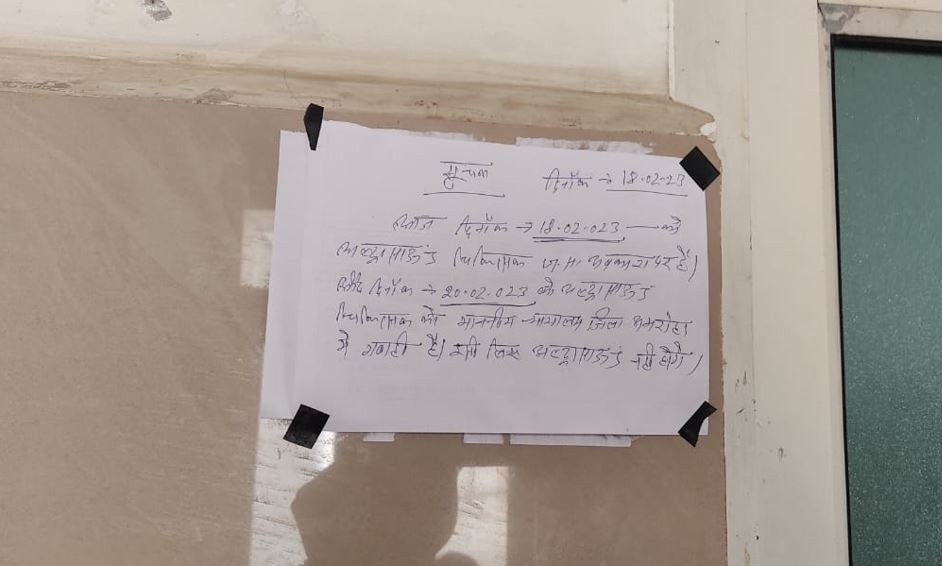 सूचना दिनाँक → 18.02.23
आज दिनाँक → 18.02.023 — को
अल्ट्रासाऊंड चिकित्सक अवकाश पर है।
और दिनाँक → 20.02.023 को अल्ट्रासाऊंड
चिकित्सक की माननीय न्यायालय जिला अमरोहा
मे गवाही है। इसी लिए अल्ट्रासाऊंड नही होंगे।